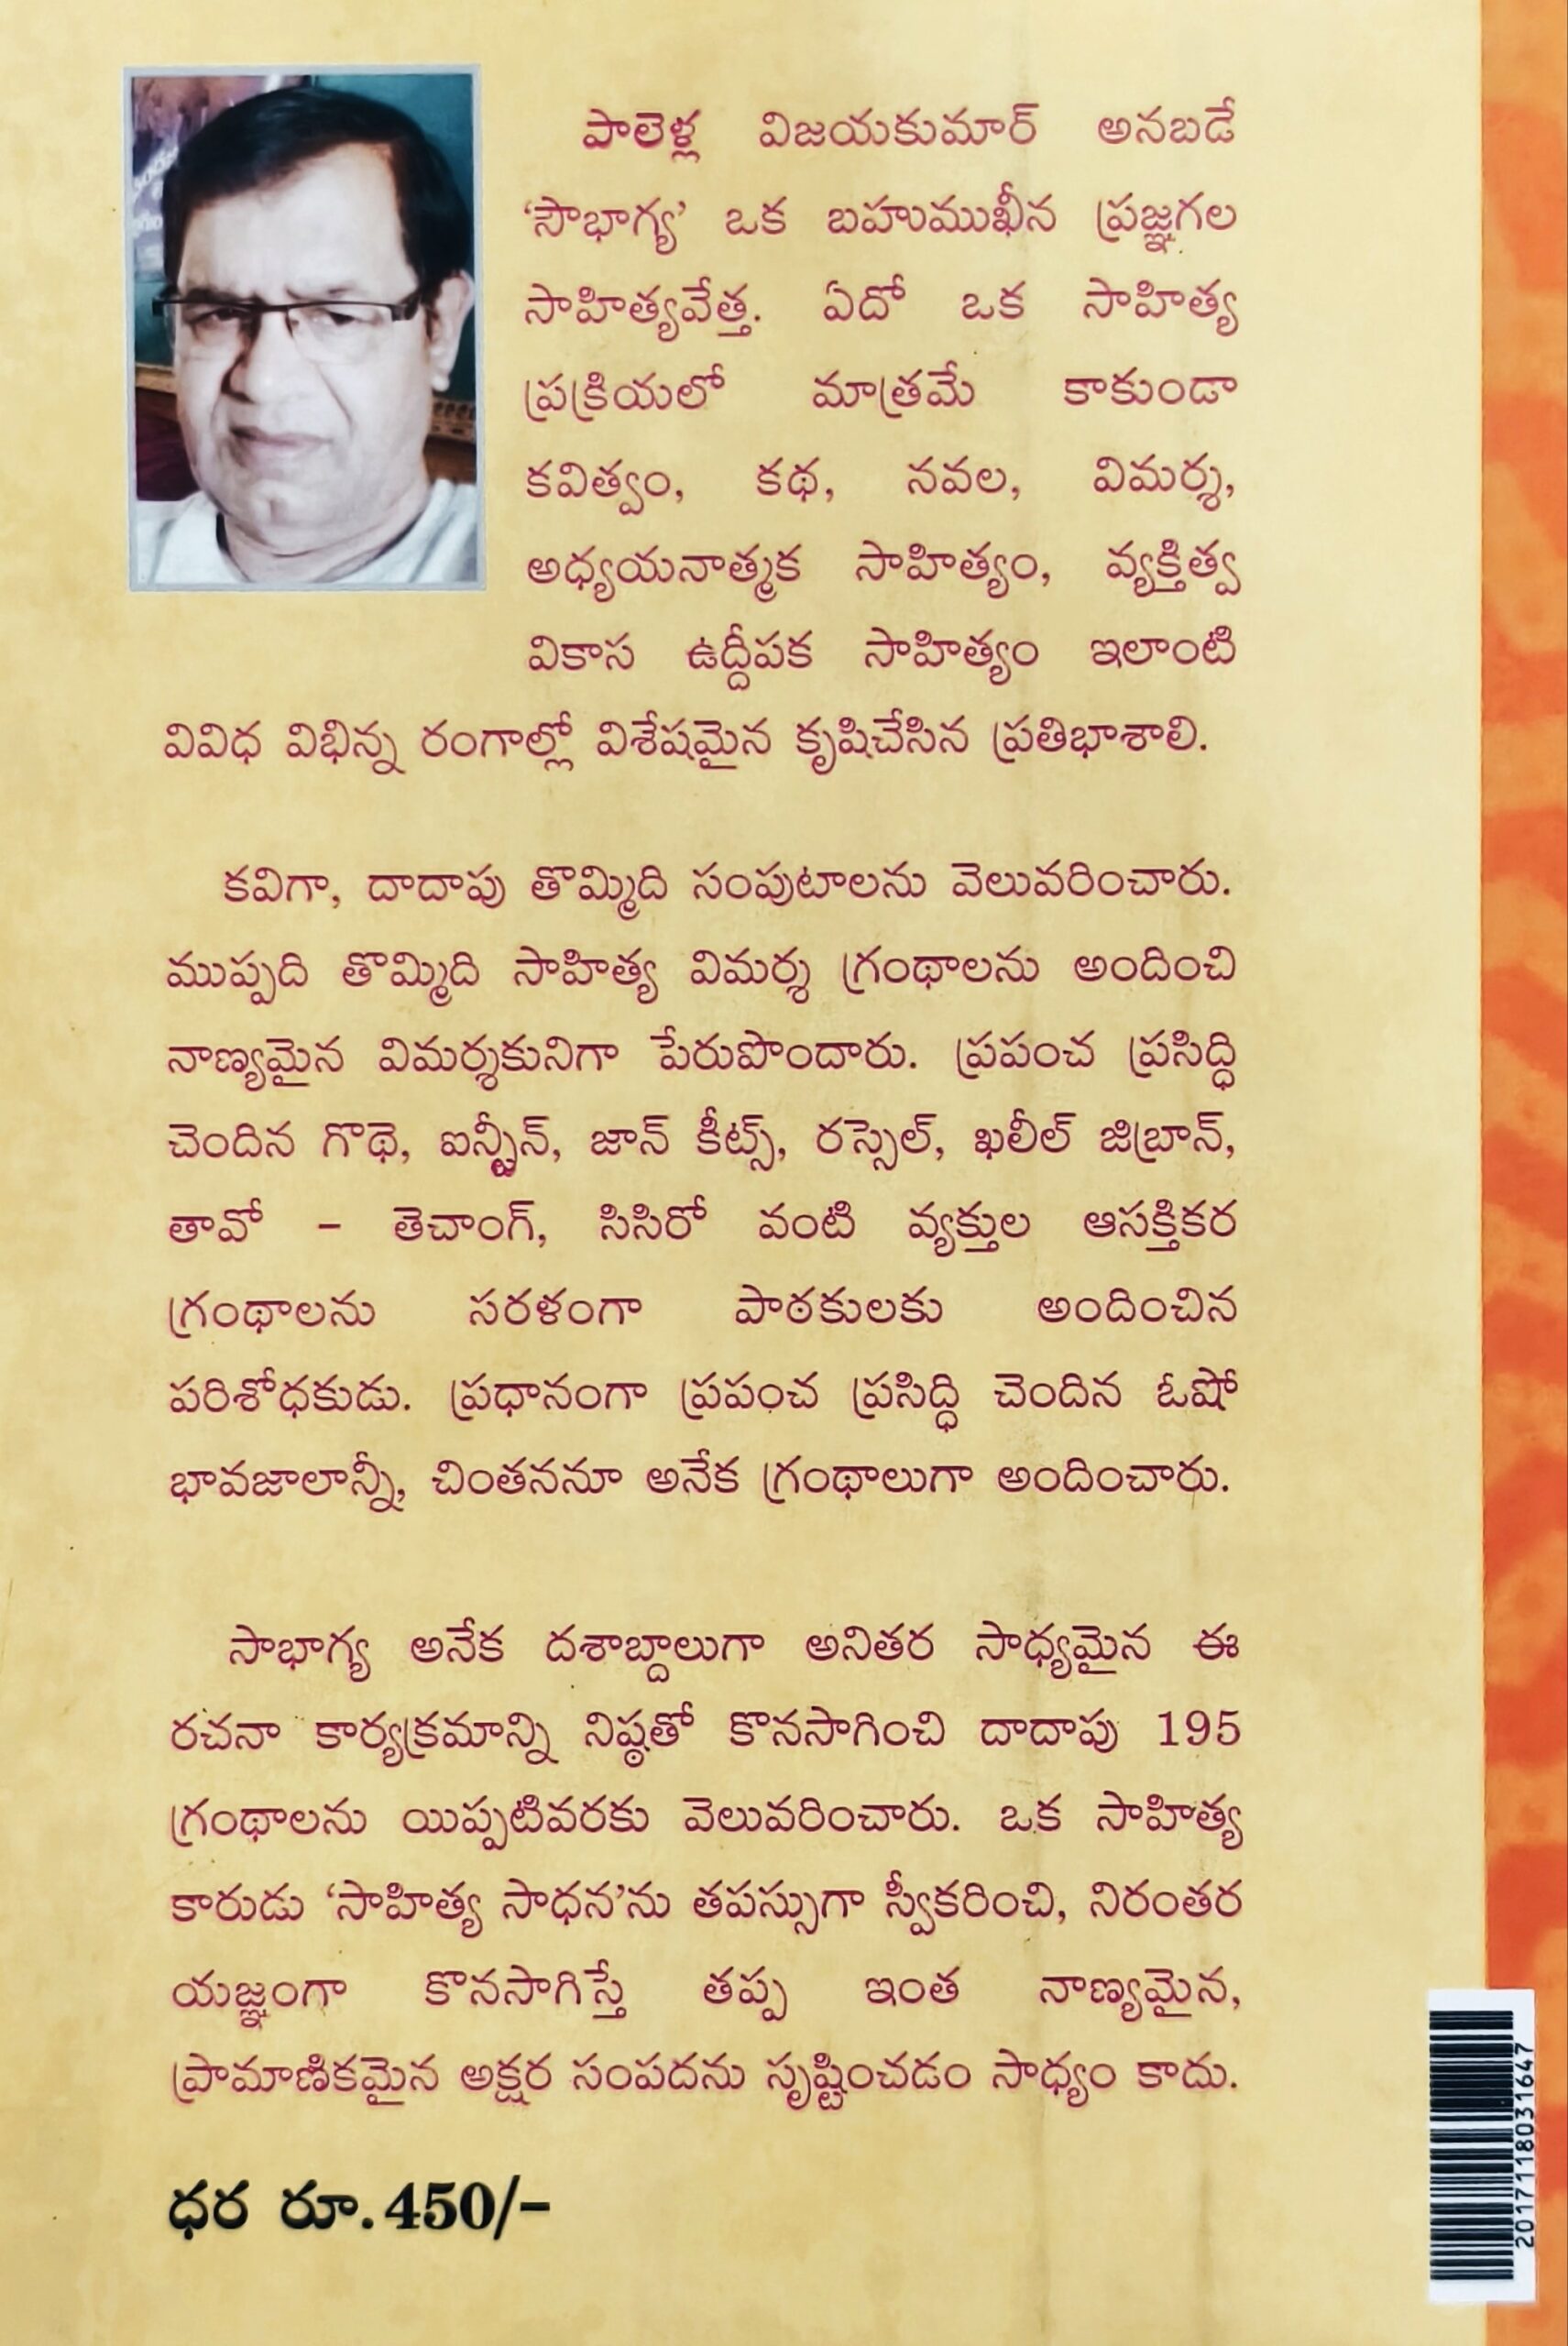 పాలెళ్ల విజయకుమార్ అనబడే
‘సౌభాగ్య’ ఒక బహుముఖీన ప్రజ్ఞగల
సాహిత్యవేత్త. ఏదో ఒక సాహిత్య
ప్రక్రియలో మాత్రమే కాకుండా
కవిత్వం, కథ, నవల, విమర్శ,
అధ్యయనాత్మక సాహిత్యం, వ్యక్తిత్వ
వికాస ఉద్దీపక సాహిత్యం ఇలాంటి
వివిధ విభిన్న రంగాల్లో విశేషమైన కృషిచేసిన ప్రతిభాశాలి.
కవిగా, దాదాపు తొమ్మిది సంపుటాలను వెలువరించారు.
ముప్పది తొమ్మిది సాహిత్య విమర్శ గ్రంథాలను అందించి
నాణ్యమైన విమర్శకునిగా పేరుపొందారు. ప్రపంచ ప్రసిద్ధి
చెందిన గొథె, ఐన్స్టీన్, జాన్ కీట్స్, రస్సెల్, ఖలీల్ జిబ్రాన్,
తావో – తెచాంగ్, సిసిరో వంటి వ్యక్తుల ఆసక్తికర
గ్రంథాలను సరళంగా పాఠకులకు అందించిన
పరిశోధకుడు. ప్రధానంగా ప్రపంచ ప్రసిద్ధి చెందిన ఓషో
భావజాలాన్నీ, చింతననూ అనేక గ్రంథాలుగా అందించారు.
సాభాగ్య అనేక దశాబ్దాలుగా అనితర సాధ్యమైన ఈ
రచనా కార్యక్రమాన్ని నిష్ఠతో కొనసాగించి దాదాపు 195
గ్రంథాలను యిప్పటివరకు వెలువరించారు. ఒక సాహిత్య
కారుడు ‘సాహిత్య సాధన’ను తపస్సుగా స్వీకరించి, నిరంతర
యజ్ఞంగా కొనసాగిస్తే తప్ప ఇంత నాణ్యమైన,
ప్రామాణికమైన అక్షర సంపదను సృష్టించడం సాధ్యం కాదు.
ధర రూ.450/-
2017118031647